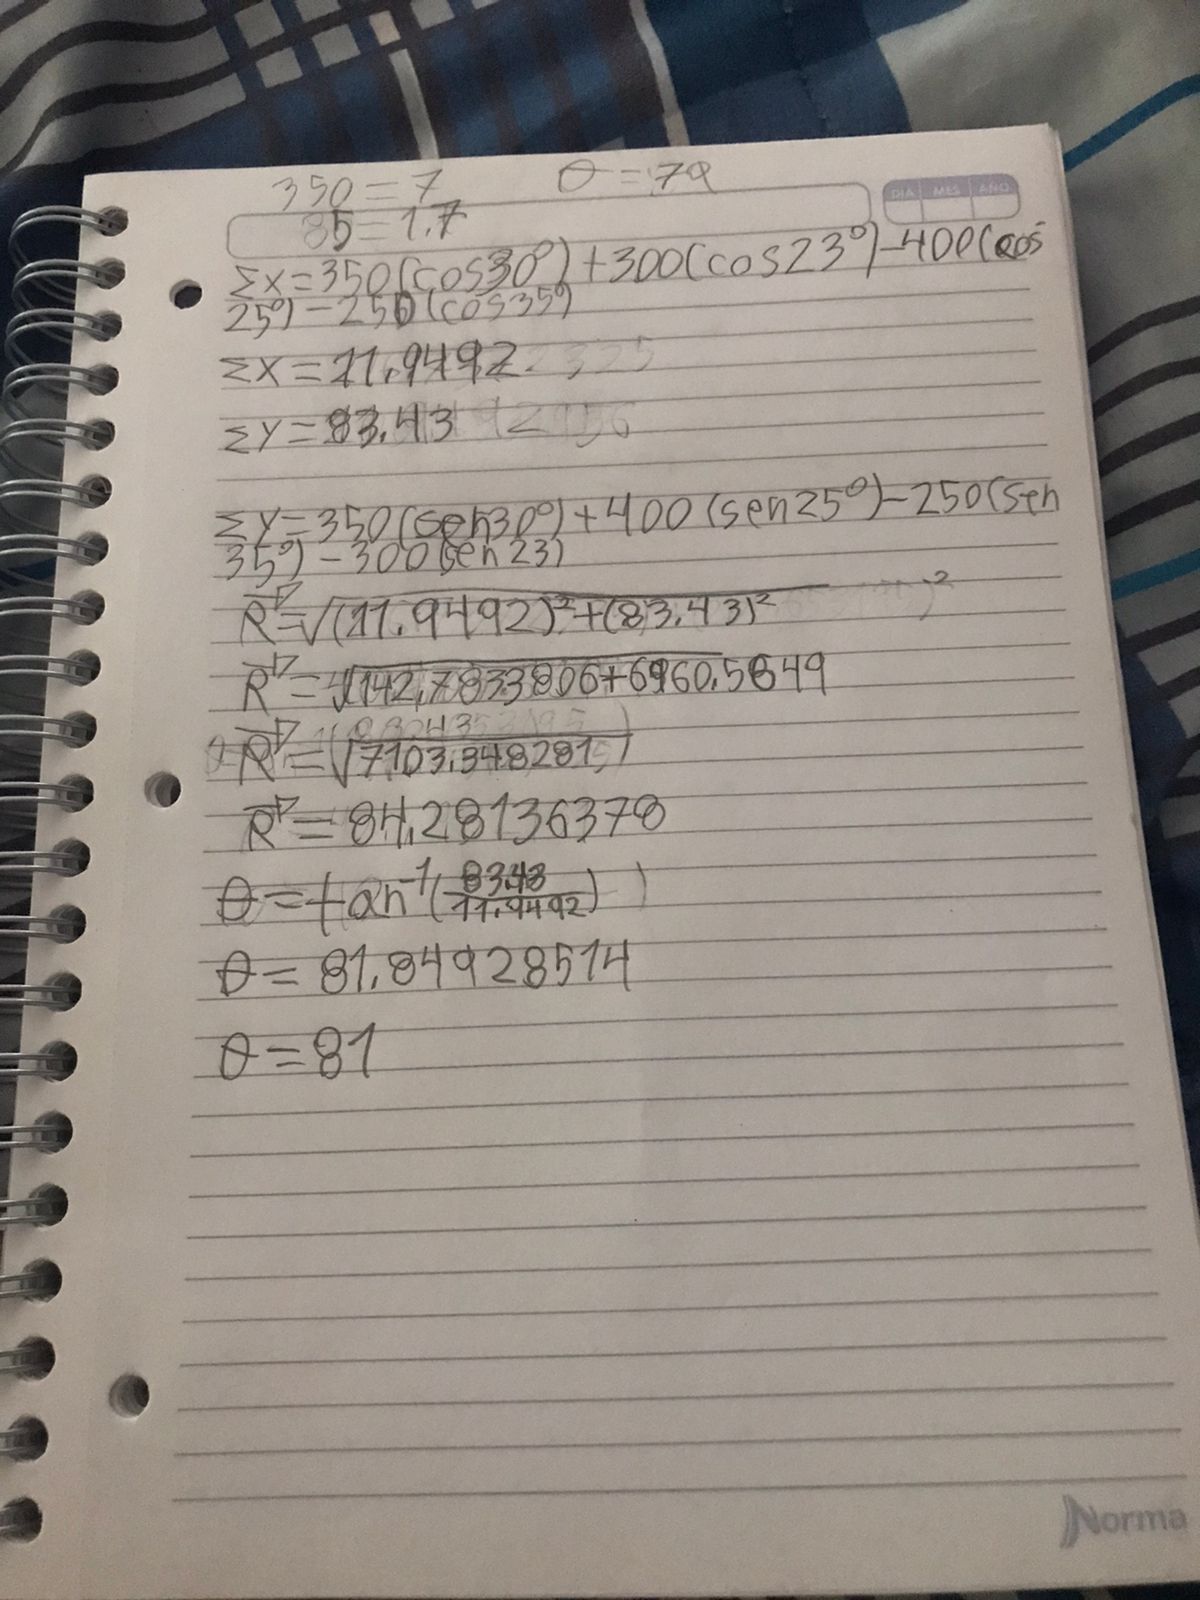 350=7 θ=79
85=1.7
DIA MES AÑO
Σx=350(cos30°)+300(cos23°)-400(cos
25°)-250(cos35°)
Σx=11.9492
Σy=83.43
Σy=350(sen30°)+400(sen25°)-250(sen
35°)-300(sen23)
R=√(11.9492)²+(83.43)²
R=√142.7833806+6960.5649
R=√7103.348281
R=84.28136378
θ=tan⁻¹(83.43/11.9492)
θ=81.84928514
θ=81
Norma